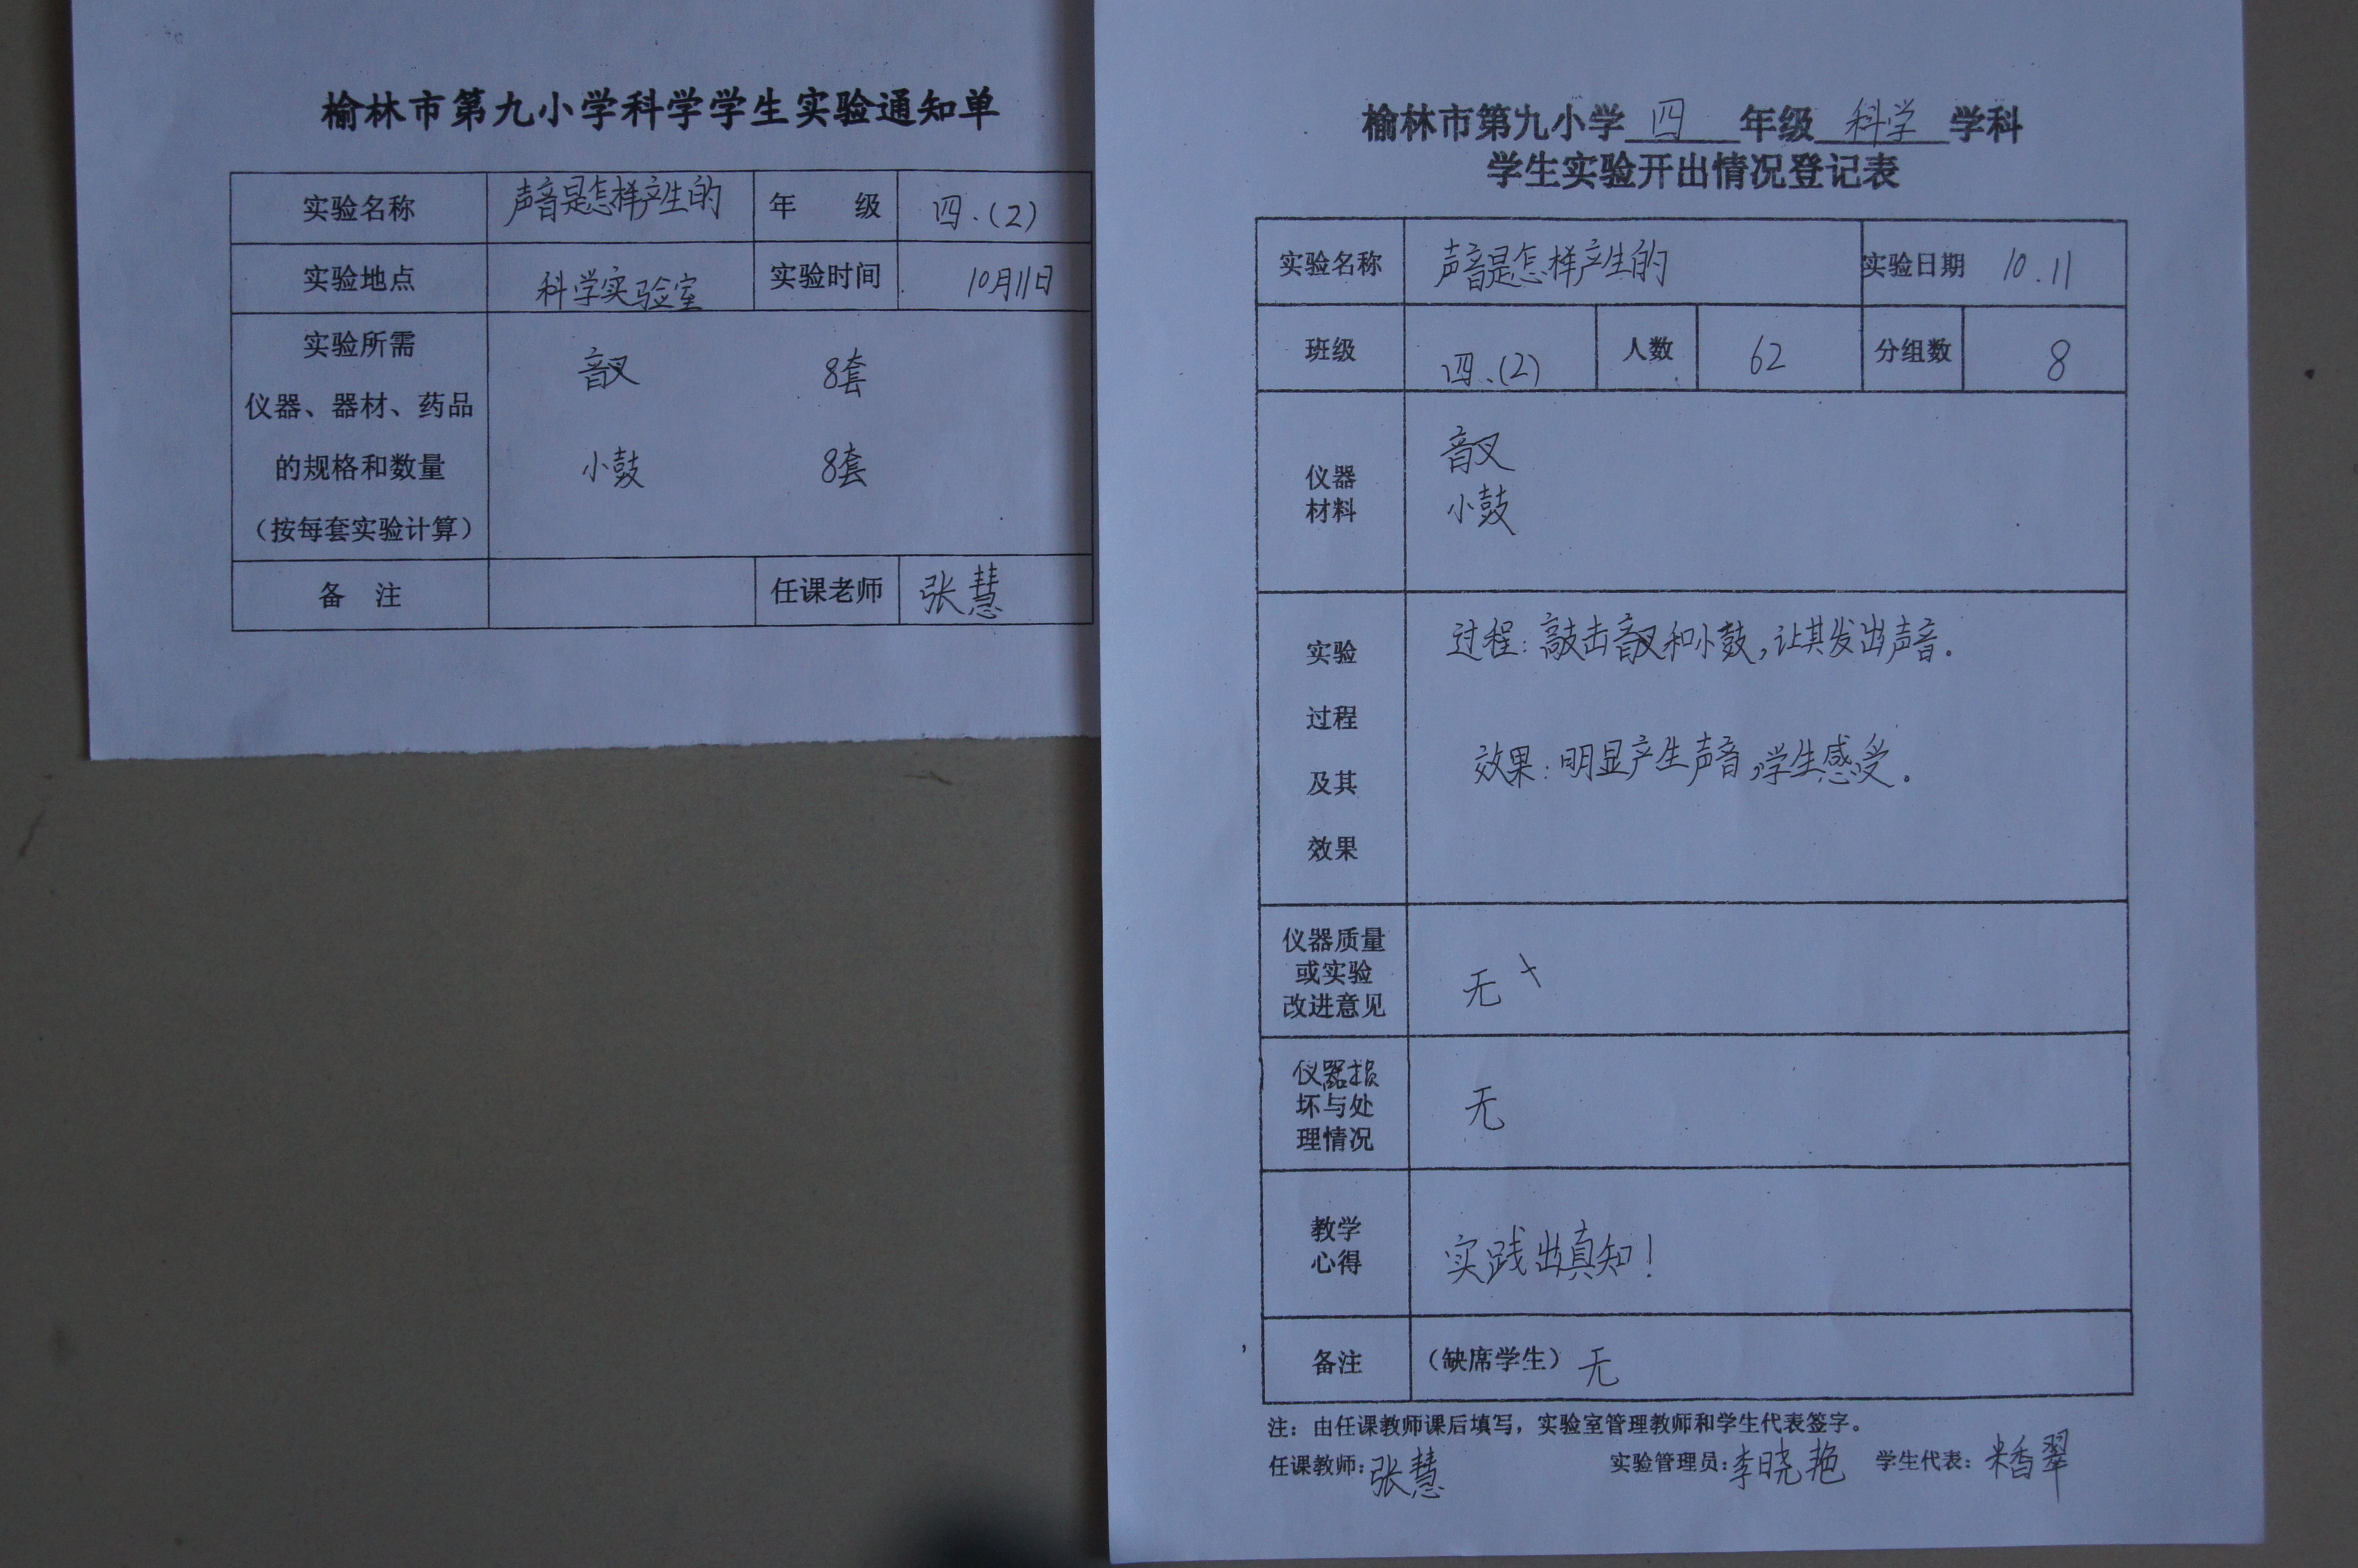 榆林市第九小学科学学生实验通知单
实验名称 声音是怎样产生的 年 级 四.(2)
实验地点 科学实验室 实验时间 10月11日
实验所需
仪器、器材、药品
的规格和数量
（按每套实验计算）
音叉 8套
小鼓 8套
备 注 任课老师 张慧
榆林市第九小学 四 年级 科学 学科
学生实验开出情况登记表
实验名称 声音是怎样产生的 实验日期 10.11
班级 四.(2) 人数 62 分组数 8
仪器
材料
音叉
小鼓
实验
过程
及其
效果
过程:敲击音叉和小鼓,让其发出声音.
效果:明显产生声音,学生感受.
仪器质量
或实验
改进意见
无
仪器损
坏与处
理情况
无
教学
心得
实践出真知!
备注 （缺席学生） 无
注：由任课教师课后填写，实验室管理教师和学生代表签字。
任课教师：张慧 实验管理员：李晓艳 学生代表：